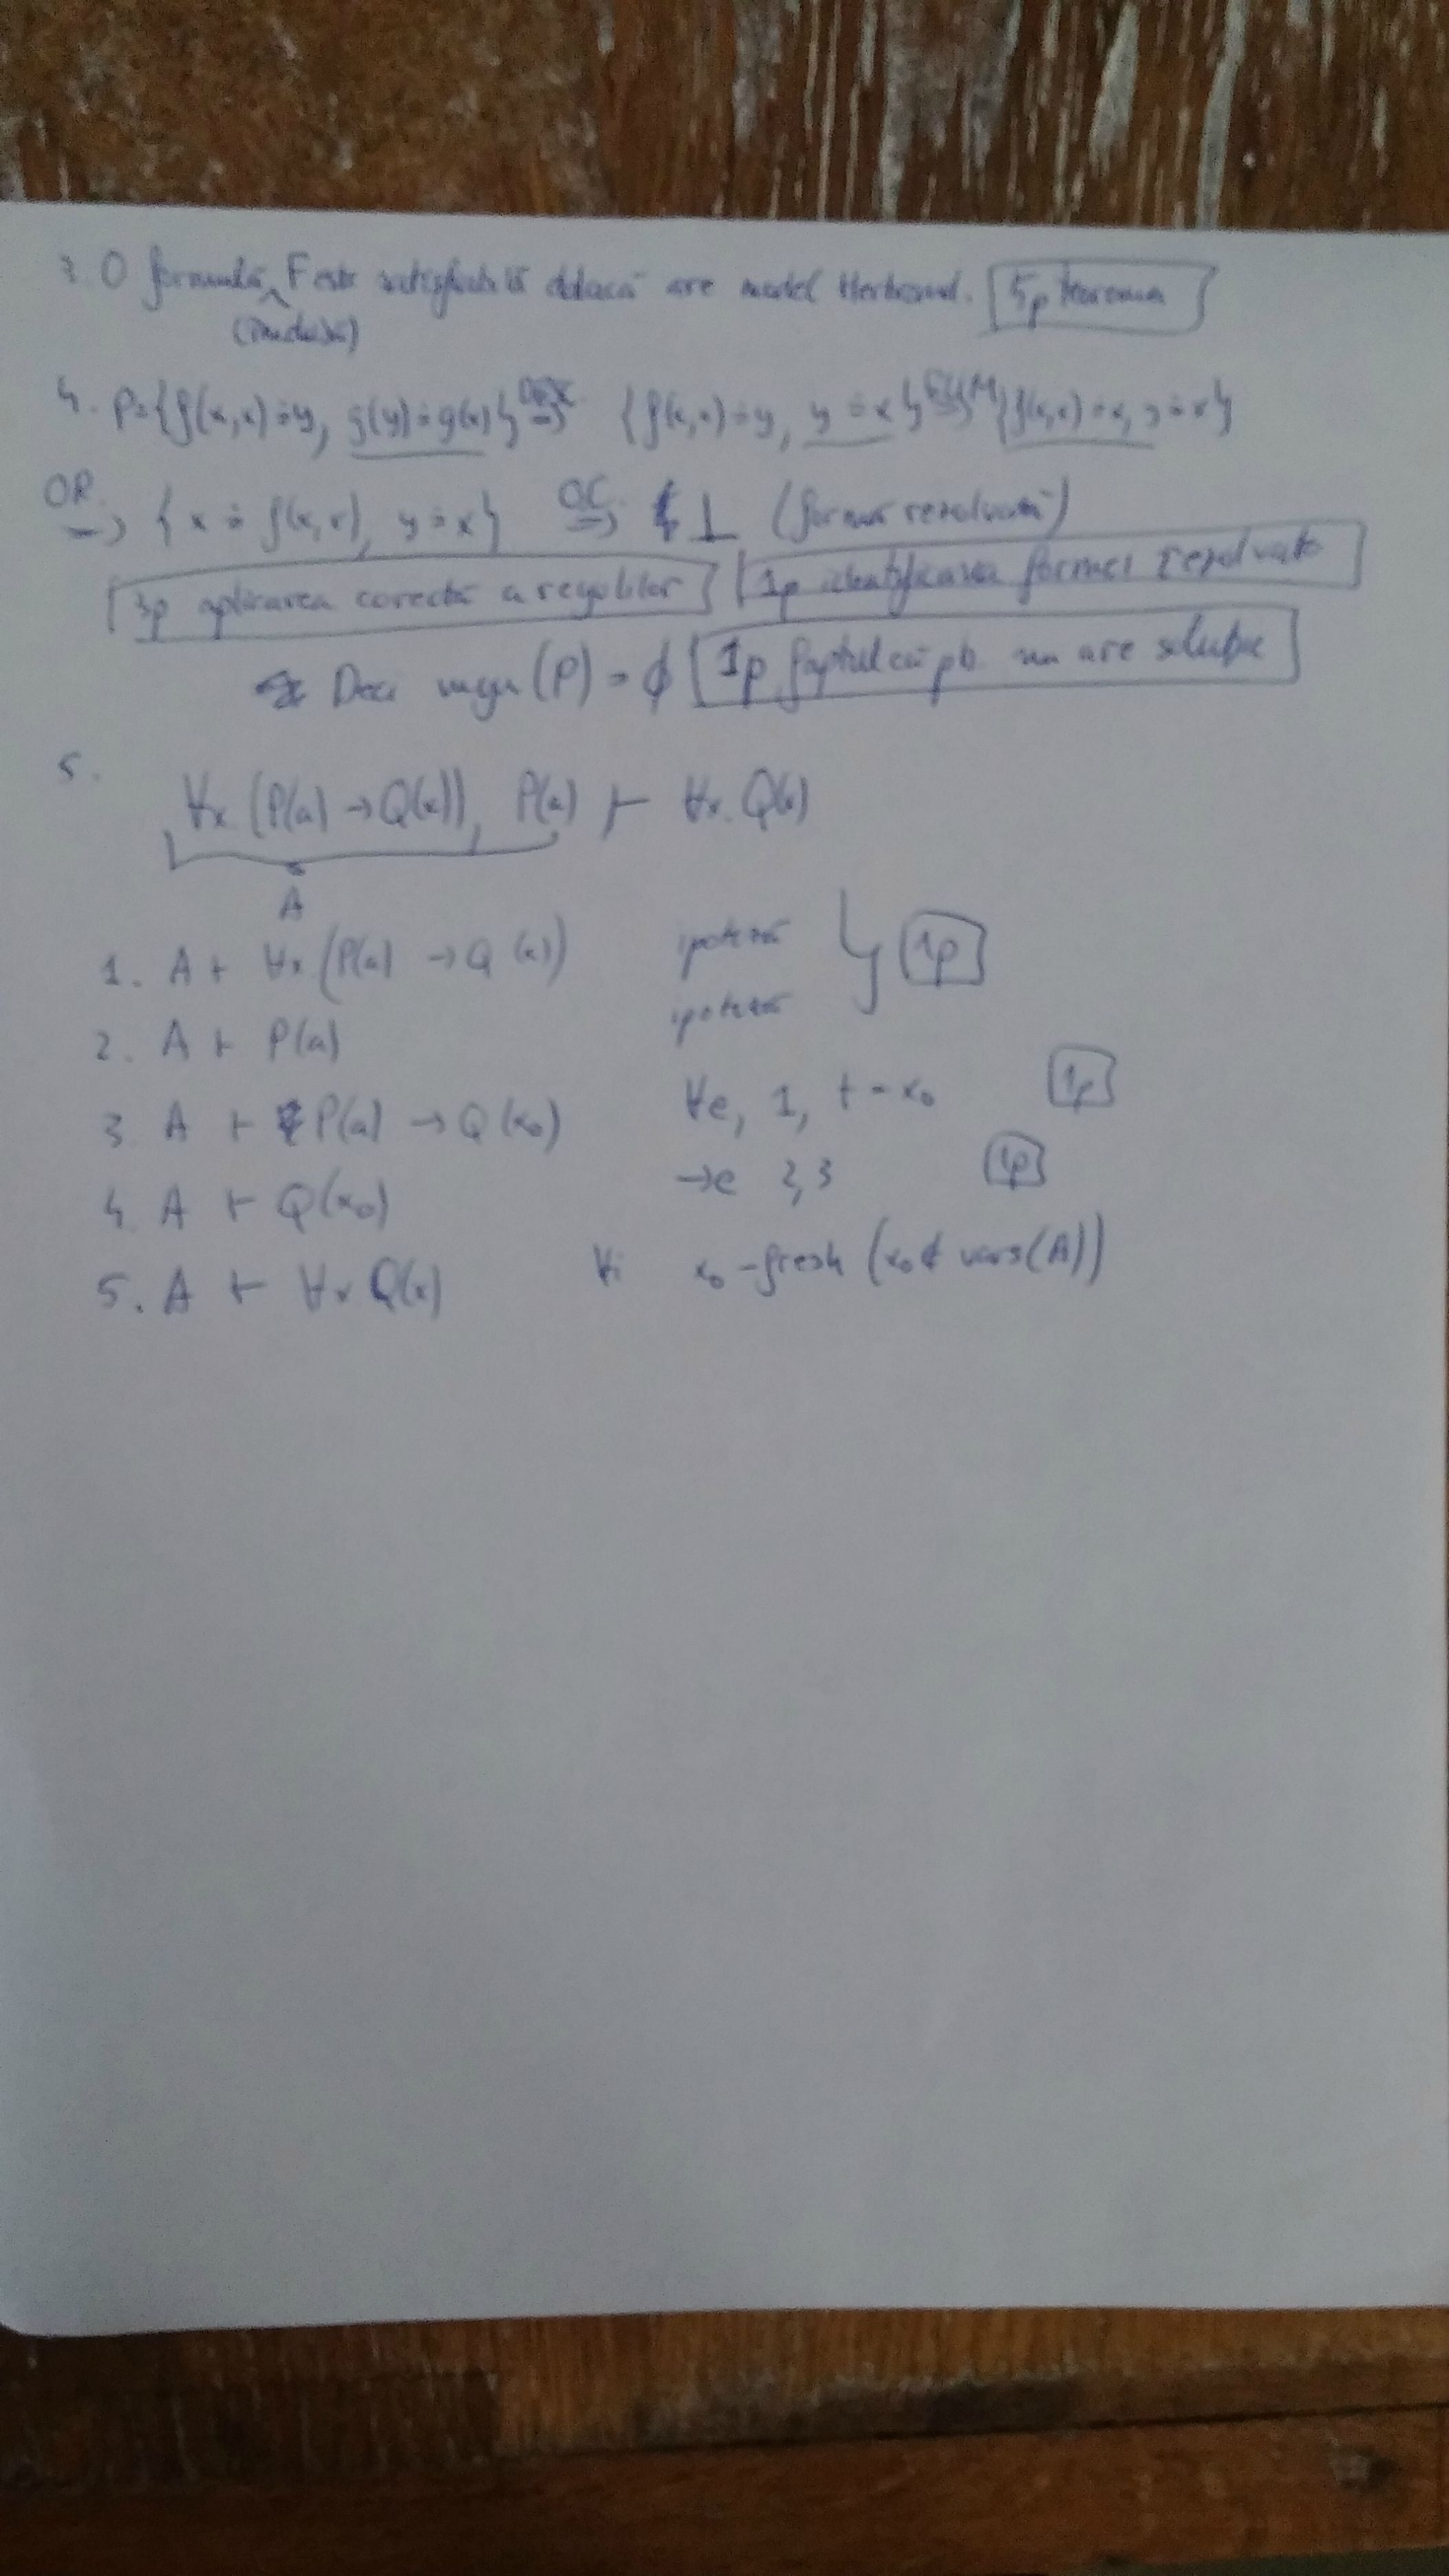 3. O formulă F este satisfiabilă ddacă are model Herbrand. 5p teorema
(închisă)
4. P={f(x,x)≐y, g(y)≐g(x)} ⇒ {f(x,x)≐y, y≐x} ⇒ {f(x,x)≐x, y≐x}
OR. ⇒ {x≐f(x,x), y≐x} OC ⇒ ⊥ (formă rezolvată)
3p aplicarea corectă a regulilor 1p identificarea formei rezolvate
Deci mgu(P)=∅ 1p faptul că pb. nu are soluție
5.
∀x.(P(a)→Q(x)), P(a) ⊢ ∀x.Q(x)
A
1. A ⊢ ∀x(P(a)→Q(x)) ipoteză 1p
2. A ⊢ P(a) ipoteză
3. A ⊢ P(a)→Q(x₀) ∀e, 1, t=x₀ 1p
4. A ⊢ Q(x₀) →e 2,3 1p
5. A ⊢ ∀x Q(x) ∀i x₀-fresh (x₀∉vars(A))